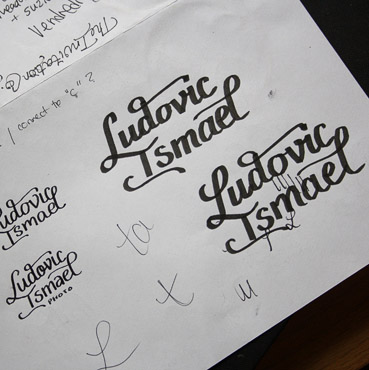 The Invitation Co.
I connect to "S" ?
Ludovic
Ismael
Ludovic
Ismael
Ludovic
Ismael
Ludovic
Ismael
PHOTO
ta
t
L